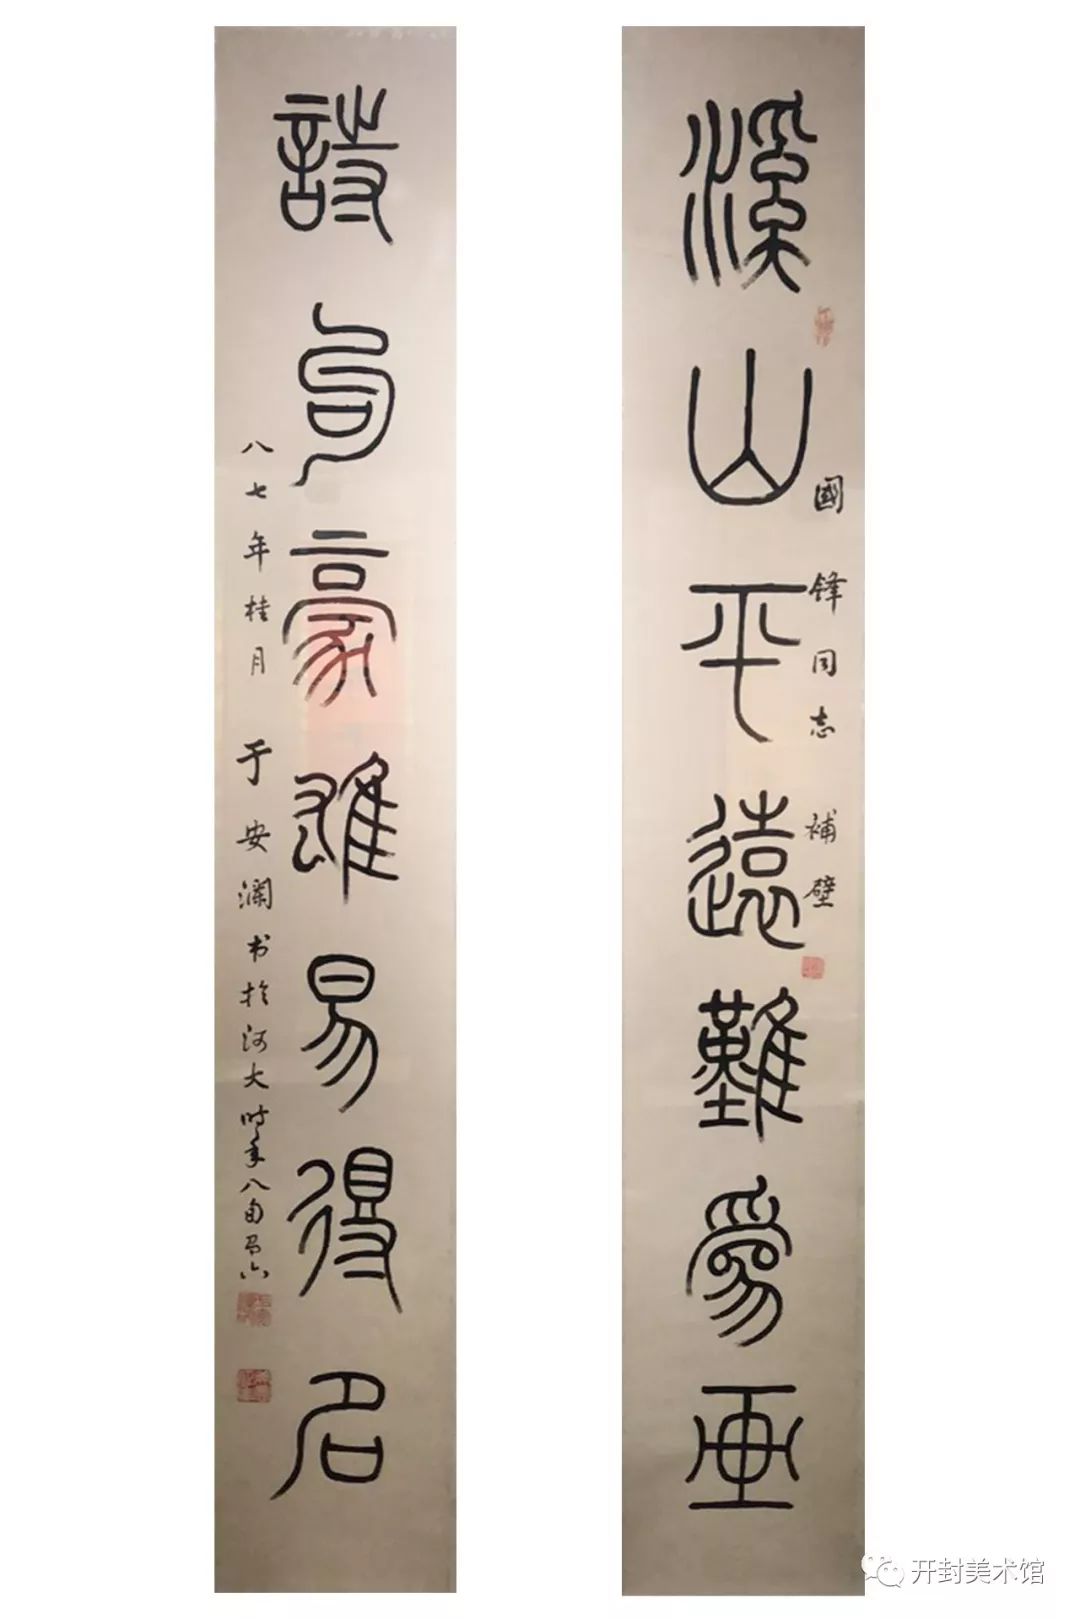 溪山平遠難爲画
國鋒同志 補壁
詩句豪雄易得名
八七年桂月 于安瀾书於河大时年八旬六
开封美术馆